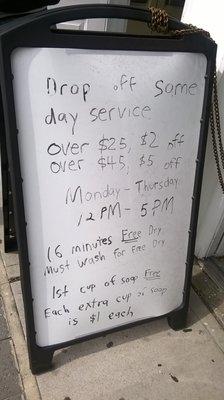 Drop off Same
day service
over $25, $2 off
over $45, $5 off
Monday - Thursday
12 PM - 5 PM
16 minutes Free Dry
Must wash for Free Dry
1st cup of soap Free
Each extra cup of soap
is $1 each